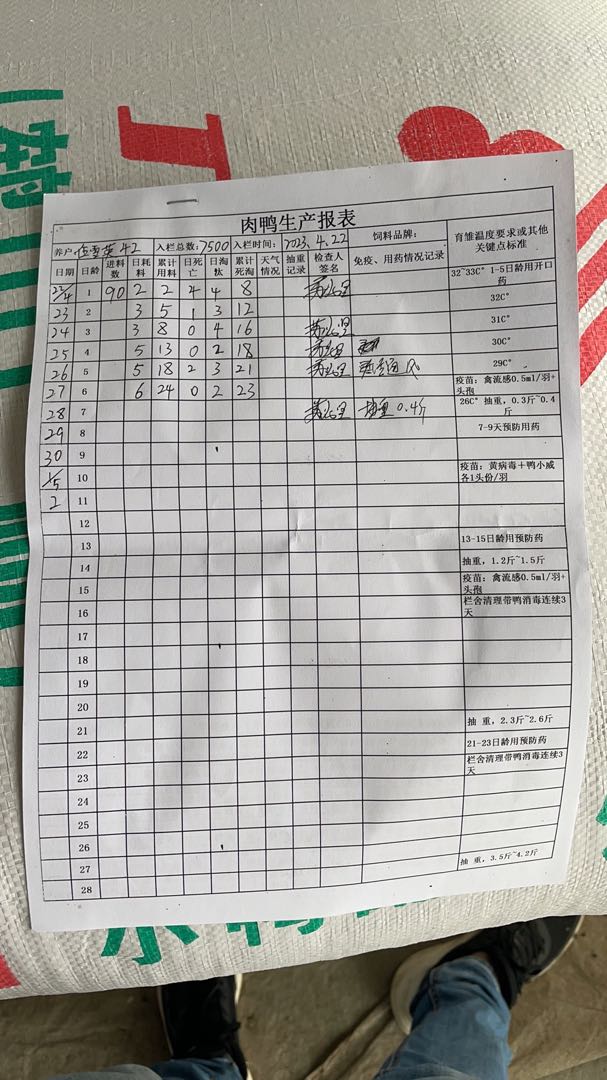 肉鸭生产报表
养户 42 入栏总数:7500 入栏时间: 2023.4.22 饲料品牌: 育雏温度要求或其他关键点标准
日期 日龄 进料数 日耗料 累计用料 日死亡 日淘汰 累计死淘 天气情况 抽重记录 检查人签名 免疫、用药情况记录
22/4 1 90 2 2 4 4 8 32~33C° 1-5日龄用开口药
23 2 3 5 1 3 12 32C°
24 3 3 8 0 4 16 31C°
25 4 5 13 0 2 18 30C°
26 5 5 18 2 3 21 通风 29C°
27 6 6 24 0 2 23 疫苗: 禽流感0.5ml/羽+头孢
28 7 抽重 0.4斤 26C° 抽重, 0.3斤~0.4斤
29 8 7-9天预防用药
30 9
1/5 10 疫苗: 黄病毒+鸭小威各1头份/羽
2 11
12
13 13-15日龄用预防药
14 抽重, 1.2斤~1.5斤
15 疫苗: 禽流感0.5ml/羽+头孢
16 栏舍清理带鸭消毒连续3天
17
18
19
20
21 抽 重, 2.3斤~2.6斤
22 21-23日龄用预防药
23 栏舍清理带鸭消毒连续3天
24
25
26
27 抽 重, 3.5斤~4.2斤
28